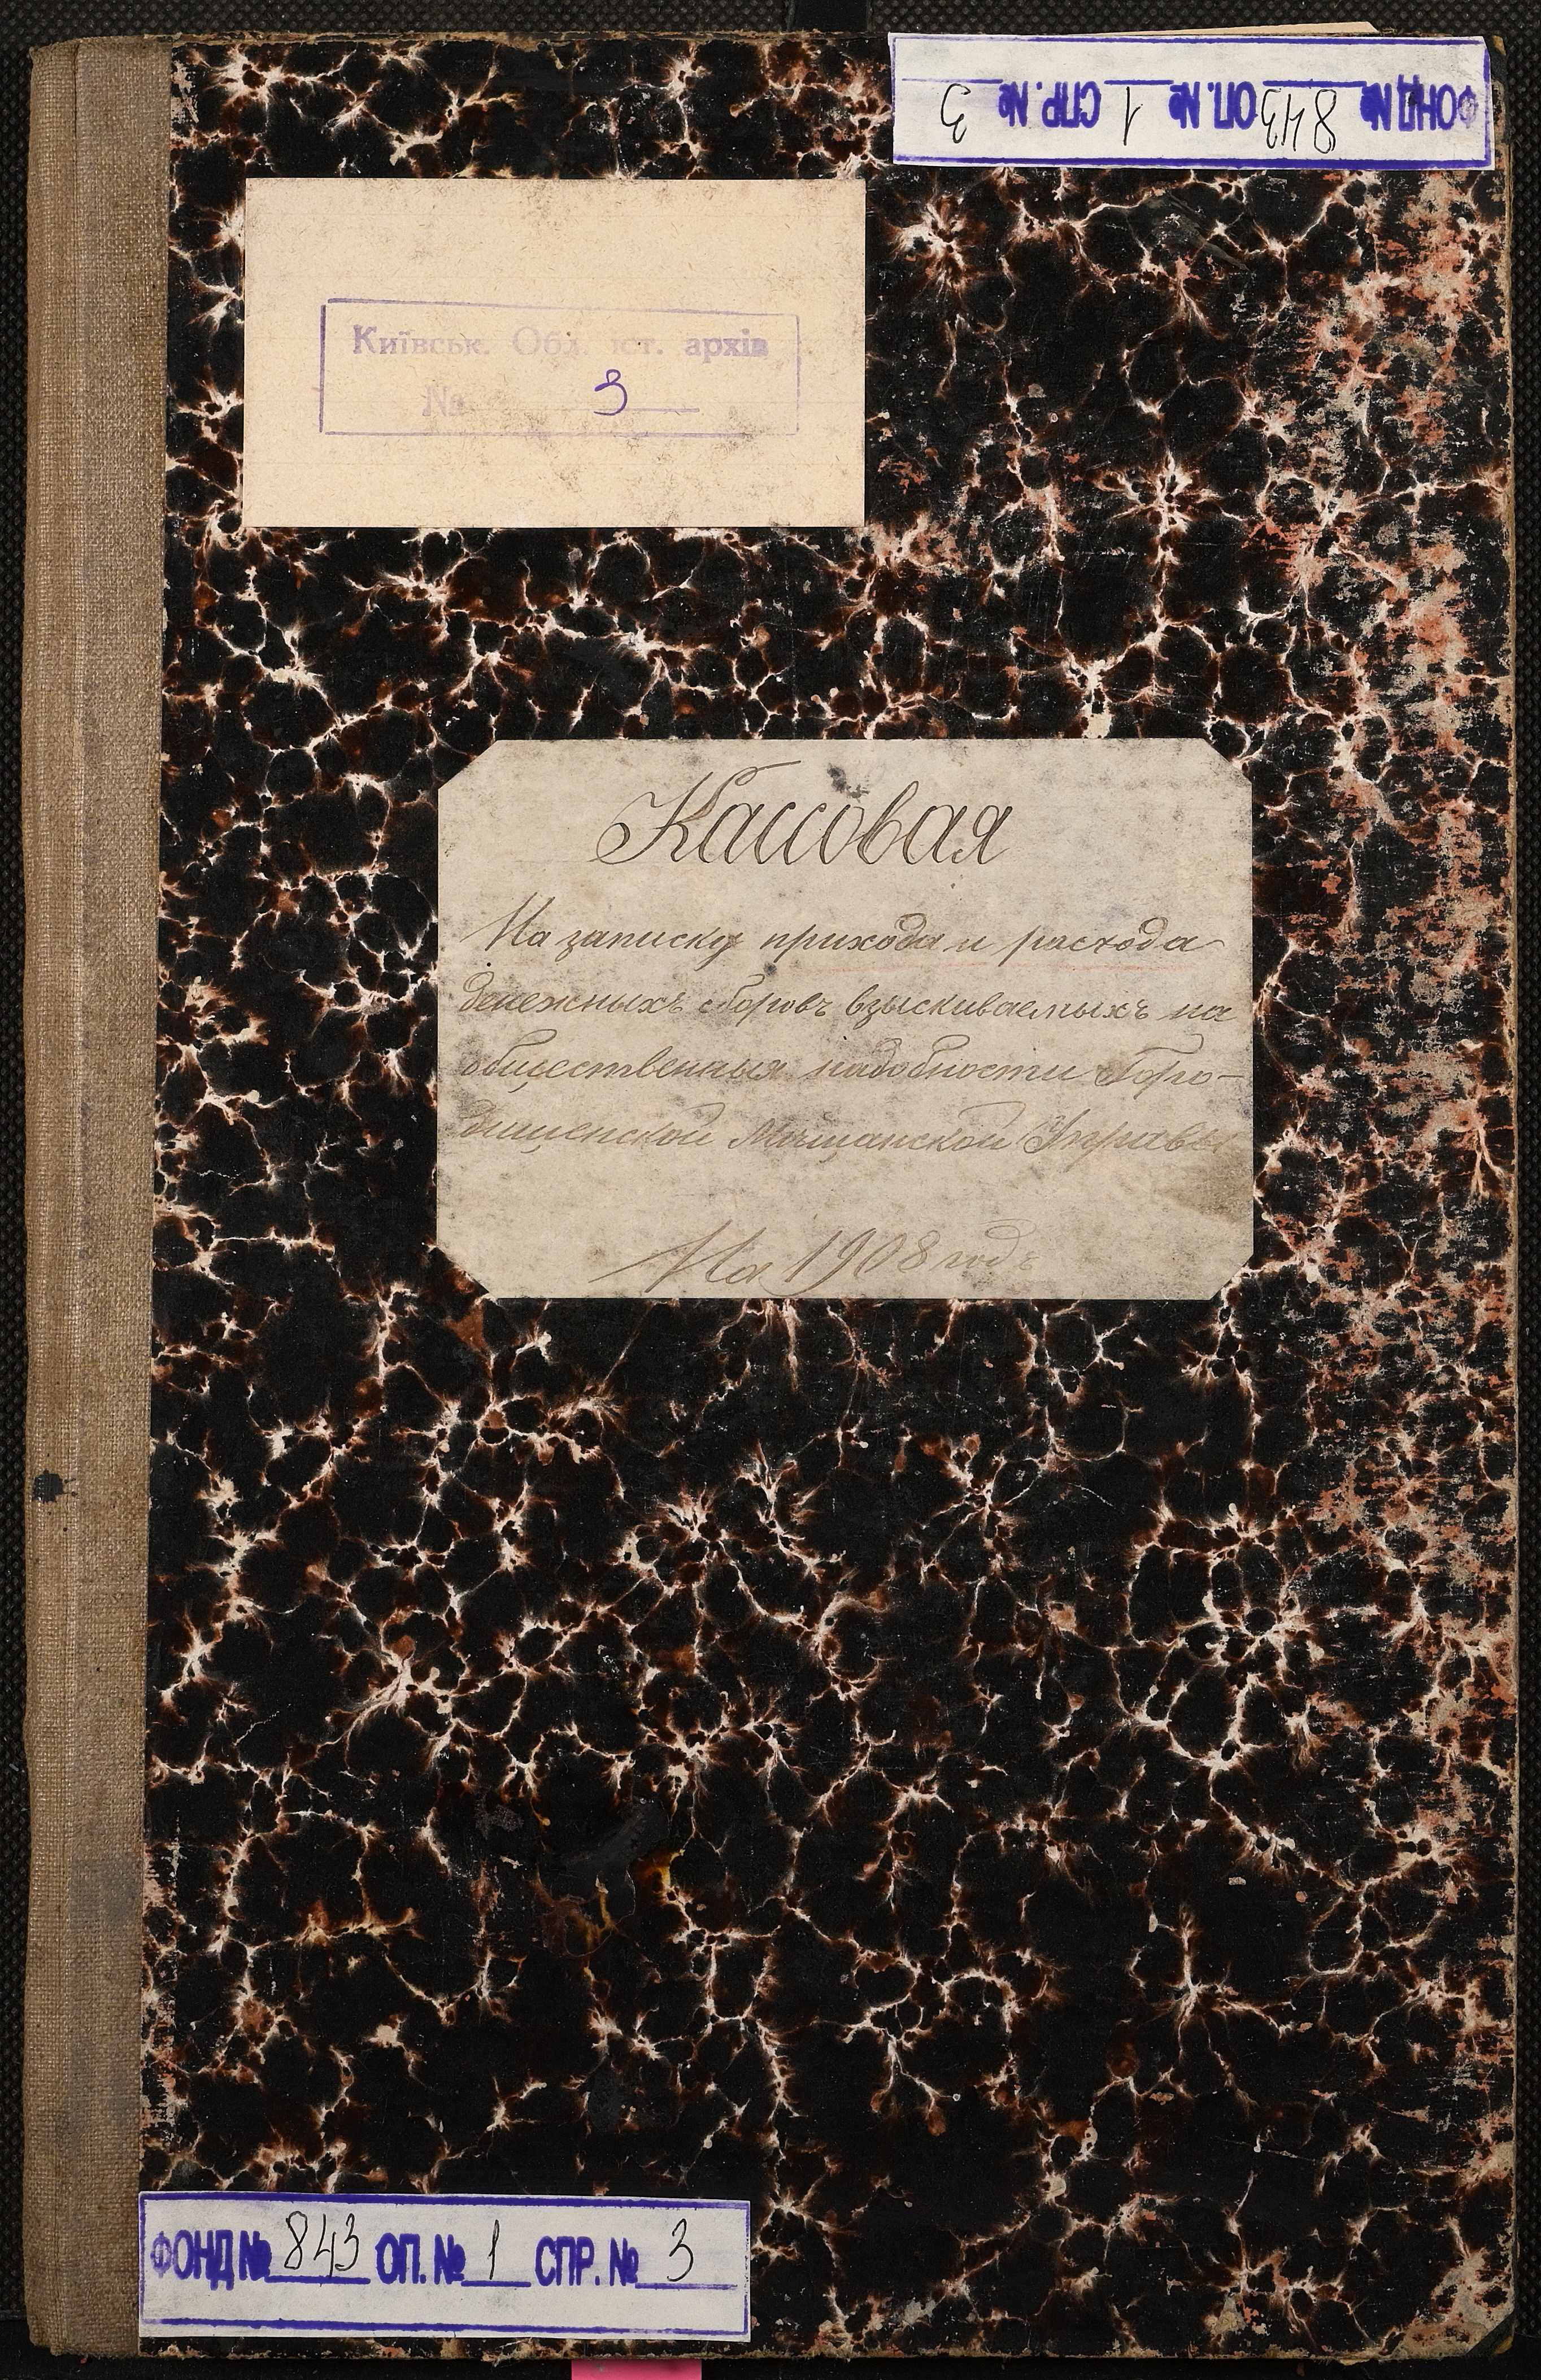 ФОНД № 843 ОП. № 1 СПР. № 3
Київськ. Обл. іст. архів
№ 3
Кассовая
На записку прихода и расхода
денежныхъ сборовъ взыскиваемыхъ на
общественныя надобности Горо-
дищенской Мѣщанской Управы
На 1908 годъ
ФОНД № 843 ОП. № 1 СПР. № 3